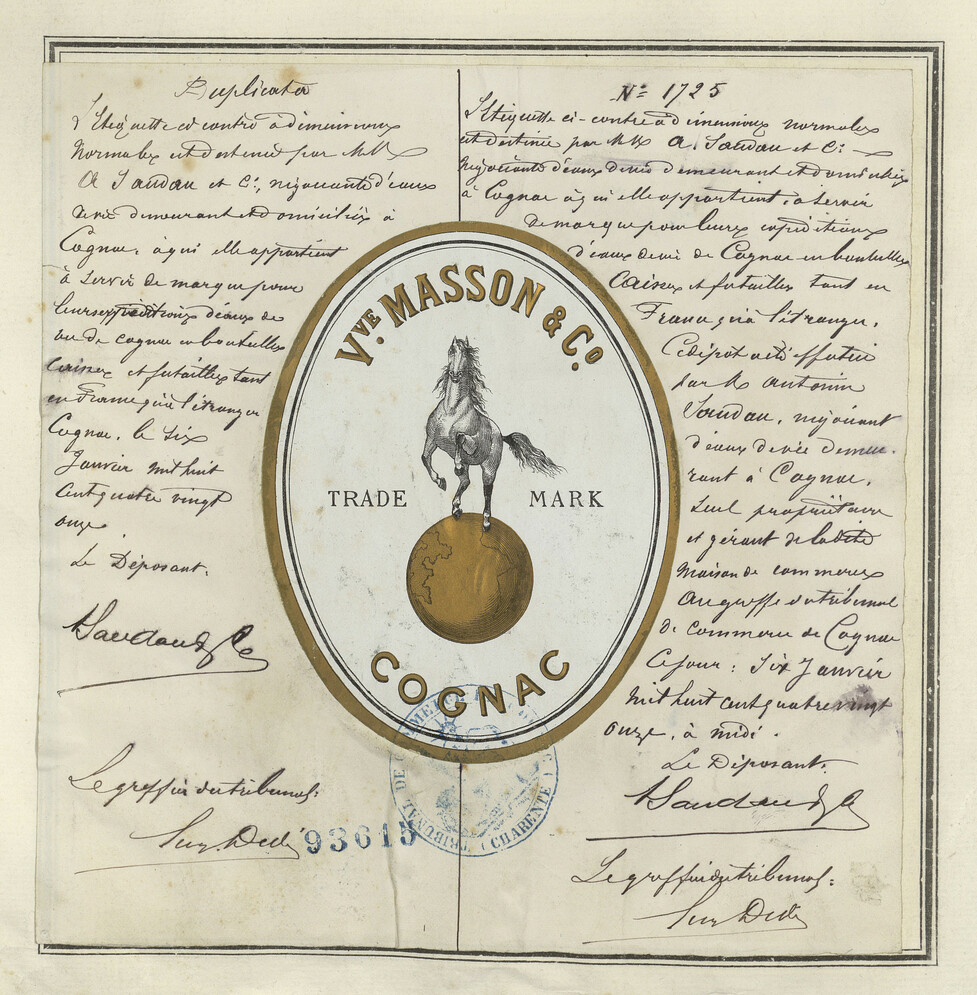 Duplicata
L'étiquette ci contre à dimensions
normales est destinée par MM
A Saudau et Cie, négociants d'eaux
de vie demeurant et domiciliés à
Cognac, à qui elle appartient
à servir de marque pour
leurs expéditions d'eaux de
vie de cognac en bouteilles
caisses et futailles tant
en France qu'à l'étranger
Cognac, le six
Janvier mil huit
cent quatre vingt
onze
Le Déposant.
Le greffier du tribunal:
93615
Nº 1725
L'étiquette ci-contre a dimensions normales
est destinée par MM A. Saudau et Cie
négociants d'eaux de vie demeurant et domiciliés
à Cognac à qui elle appartient, à servir
de marque pour leurs expéditions
d'eaux de vie de Cognac en bouteilles
caisses et futailles tant en
France qu'à l'étranger.
Ce dépôt a été effectué
par M Antonin
Saudau, négociant
d'eaux de vie demeu-
rant à Cognac,
seul propriétaire
et gérant de la dite
maison de commerce
au greffe du tribunal
de commerce de Cognac
ce jour: six Janvier
mil huit cent quatre vingt
onze, à midi.
Le Déposant.
Le greffier du tribunal:
Vve MASSON & Co
TRADE MARK
COGNAC
TRIBUNAL DE COMMERCE
(CHARENTE)